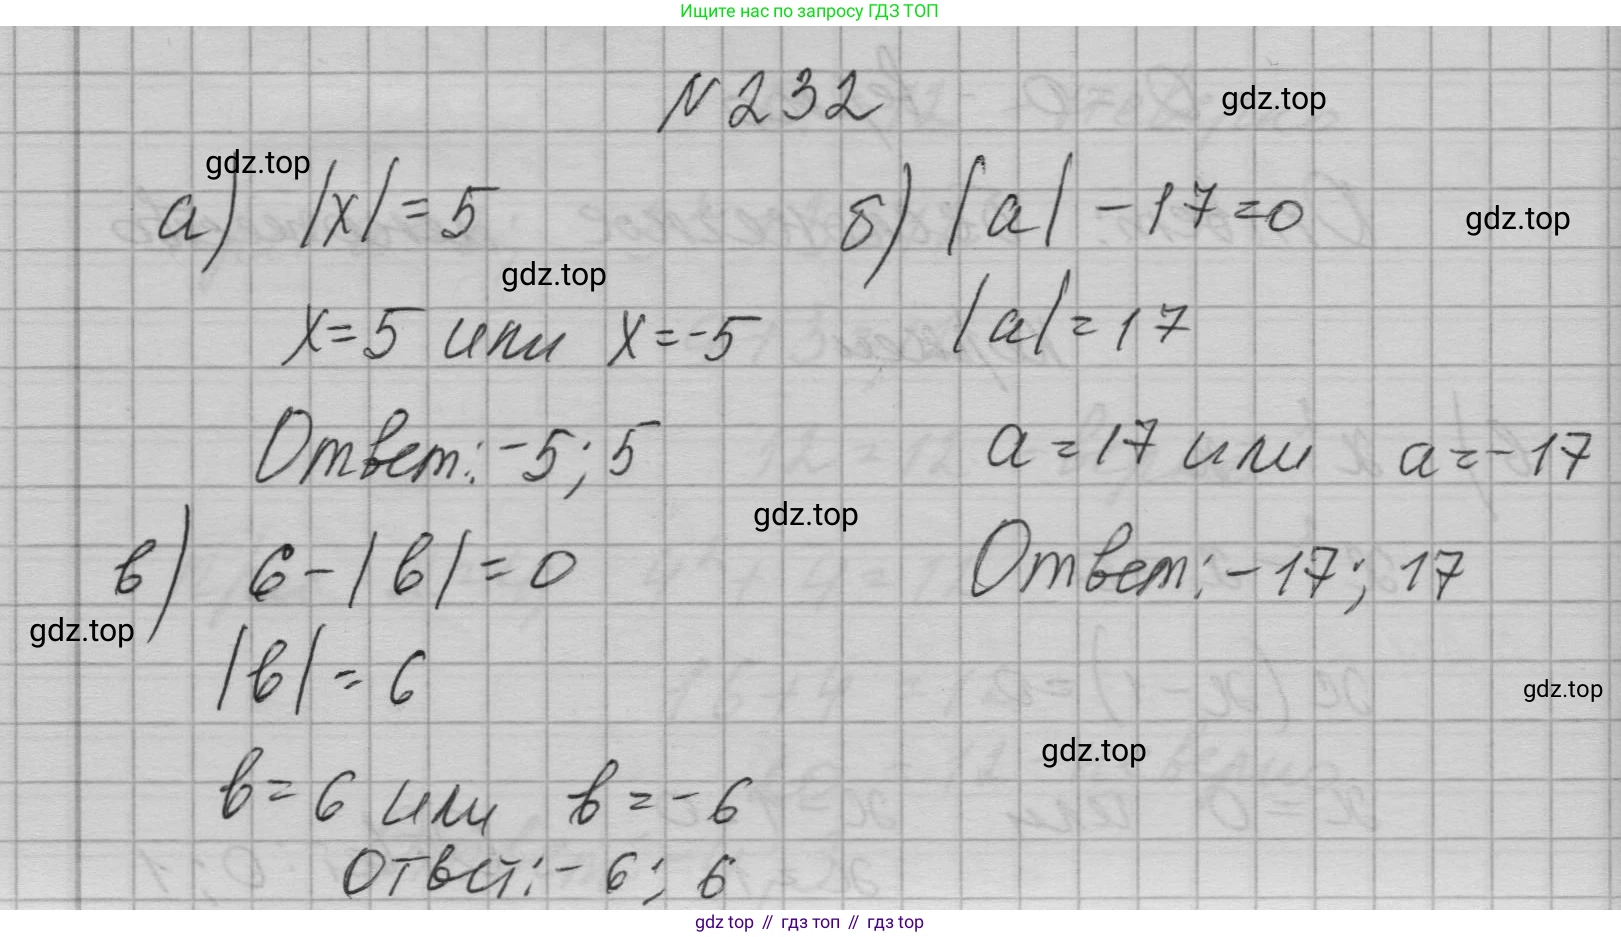 Ищите нас по запросу ГДЗ ТОП
№ 232
gdz.top
gdz.top
а) |x| = 5
б) |a| - 17 = 0
gdz.top
gdz.top
x = 5 или x = -5
|a| = 17
Ответ: -5; 5
a = 17 или a = -17
gdz.top
в) 6 - |в| = 0
Ответ: -17; 17
gdz.top
|в| = 6
gdz.top
gdz.top
в = 6 или в = -6
Ответ: -6; 6
gdz top // гдз топ // гдз top